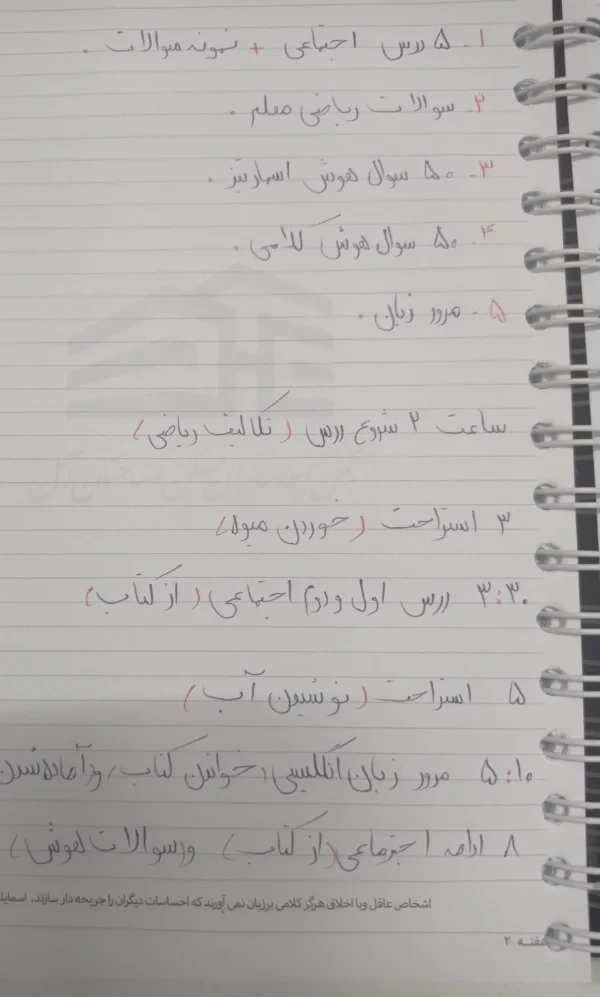 ۱. ۵ درس اجتماعی + نمونه سوالات.
۲. سوالات ریاضی معلم.
۳. ۵۰ سوال هوش اسمارتیز.
۴. ۵۰ سوال هوش کلامی.
۵. مرور زبان.
ساعت ۲ شروع درس (تکالیف ریاضی)
۳ استراحت (خوردن میوه)
۳:۳۰ درس اول و دوم اجتماعی (از کتاب)
۵ استراحت (نوشیدن آب)
۵:۱۰ مرور زبان انگلیسی (خواندن کتاب) و آماده شدن
۸ ادامه اجتماعی (از کتاب) و (سوالات هوش)
اشخاص عاقل وبا اخلاق هرگز کلامی برزبان نمی آورند که احساسات دیگران را جریحه دار سازند.
هفته ۲